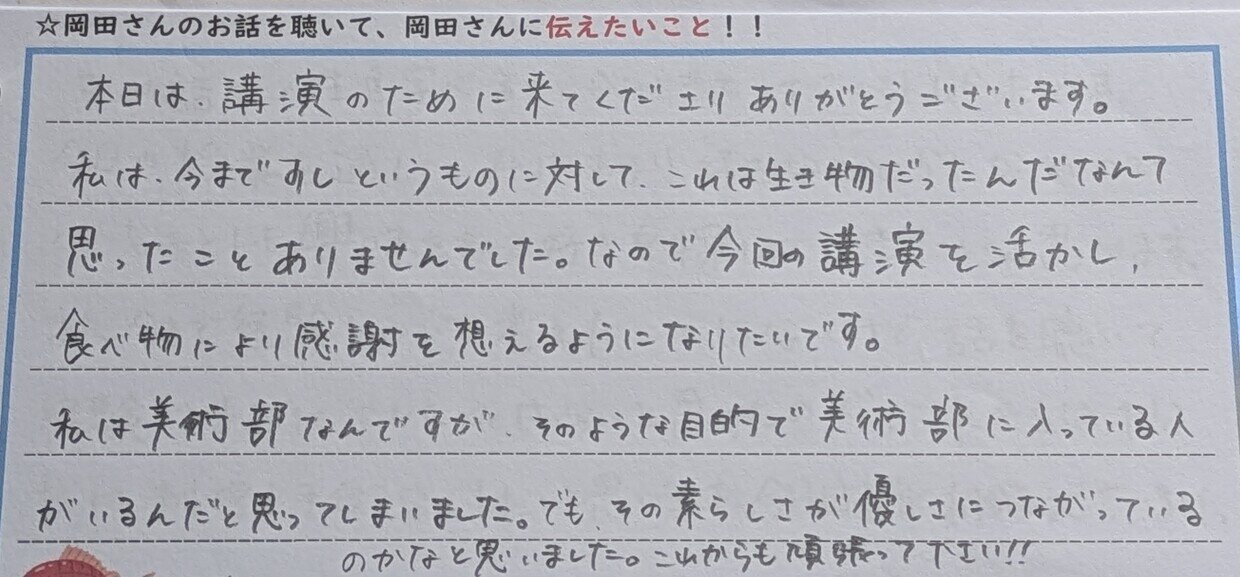 ☆岡田さんのお話を聴いて、岡田さんに伝えたいこと！！
本日は、講演のために来てくださりありがとうございます。
私は、今まですしというものに対して、これは生き物だったんだなんて
思ったことありませんでした。なので今回の講演を活かし、
食べ物により感謝を想えるようになりたいです。
私は美術部なんですが、そのような目的で美術部に入っている人
がいるんだと思ってしまいました。でも、その素らしさが優しさにつながっている
のかなと思いました。これからも頑張って下さい!!